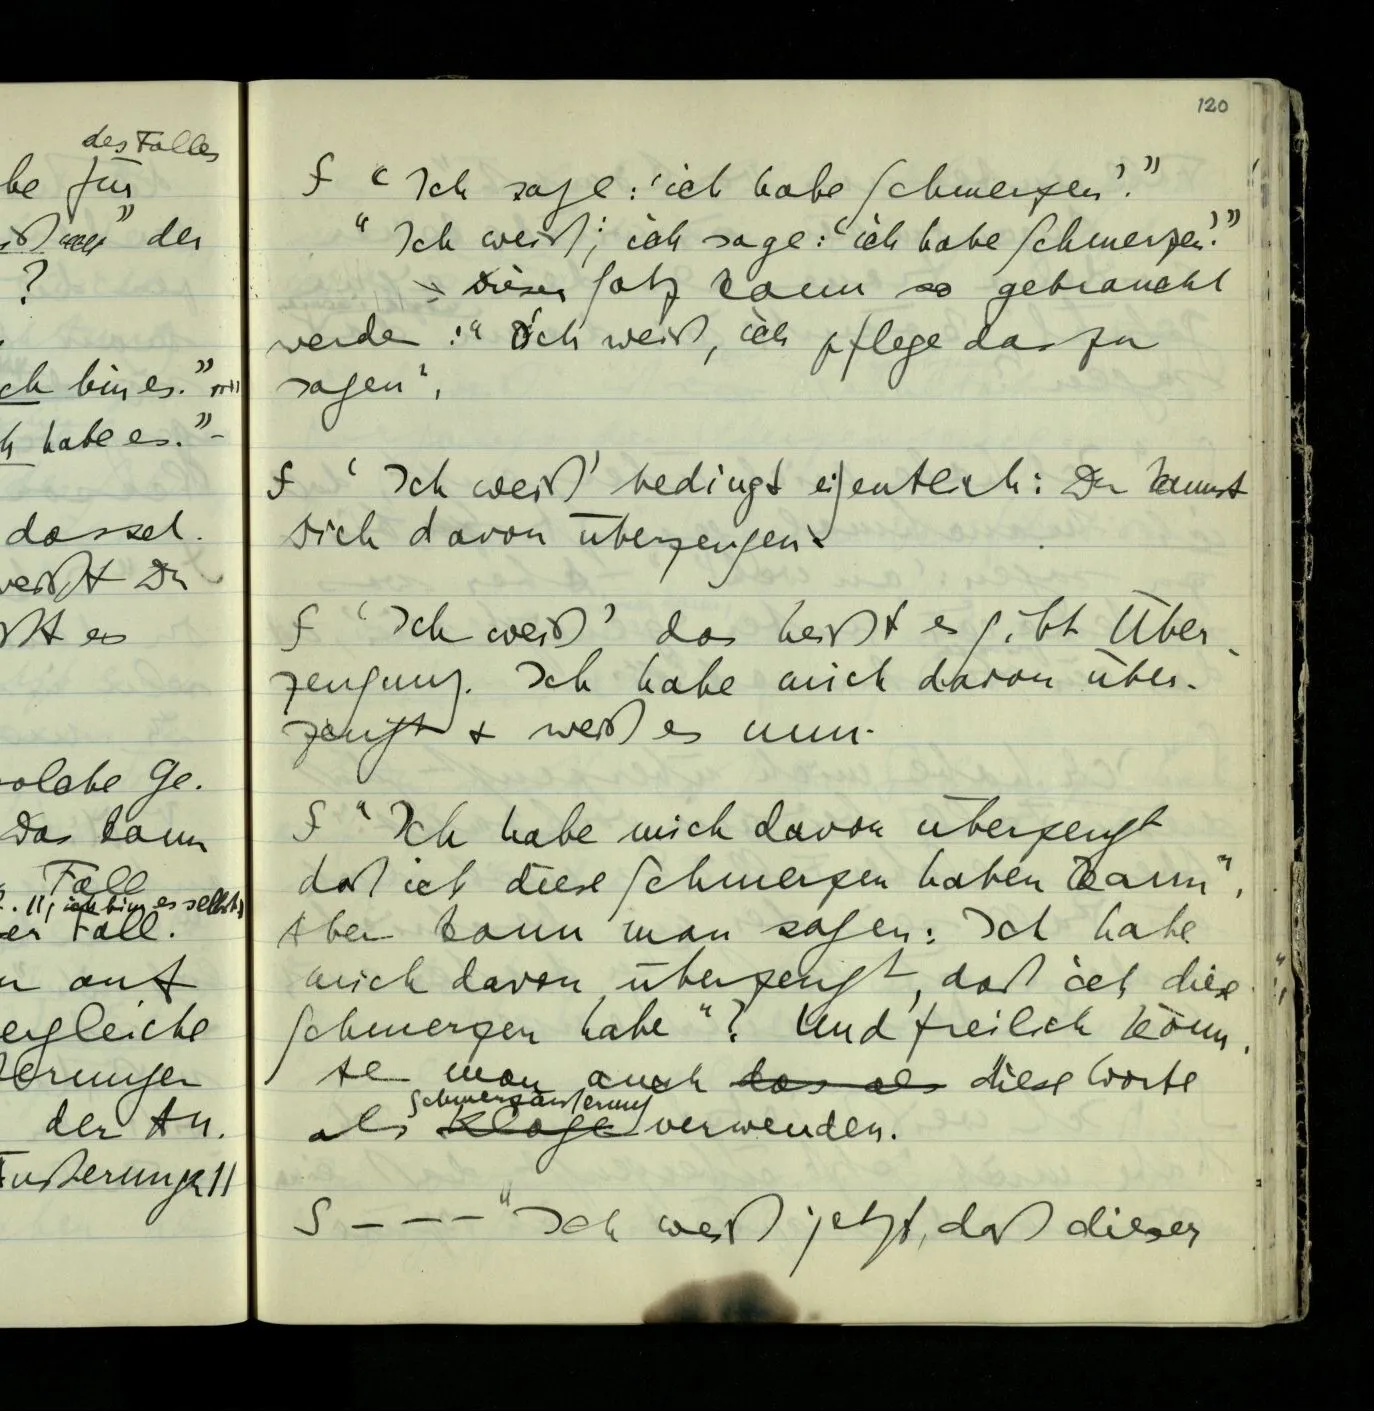 des Falles
be für
der
?
ch bin es."
h habe es." -
dassel.
weißt Du
ßt es
solche Ge.
Das kann
Fall
ich bin es selbst
er Fall.
n auf
ergleiche
erungen
der An.
Äußerung
120
∫ " Ich sage: 'ich habe Schmerzen'."
" Ich weiß; ich sage: 'ich habe Schmerzen'."
Dieser Satz kann so gebraucht
werden: " Ich weiß, ich pflege das zu
sagen".
∫ ' Ich weiß' bedingt eigentlich: Du kannst
Dich davon überzeugen.
∫ ' Ich weiß' das heißt es gibt Über-
zeugung. Ich habe mich davon über-
zeugt & weiß es nun.
∫ " Ich habe mich davon überzeugt
daß ich diese Schmerzen haben kann".
Aber kann man sagen: Ich habe
mich davon überzeugt, daß ich diese
Schmerzen habe"? Und freilich könn-
te man auch das als diese Worte
Schmerzäußerung
als Klage verwenden.
∫ – – – – " Ich weiß jetzt, daß dieser